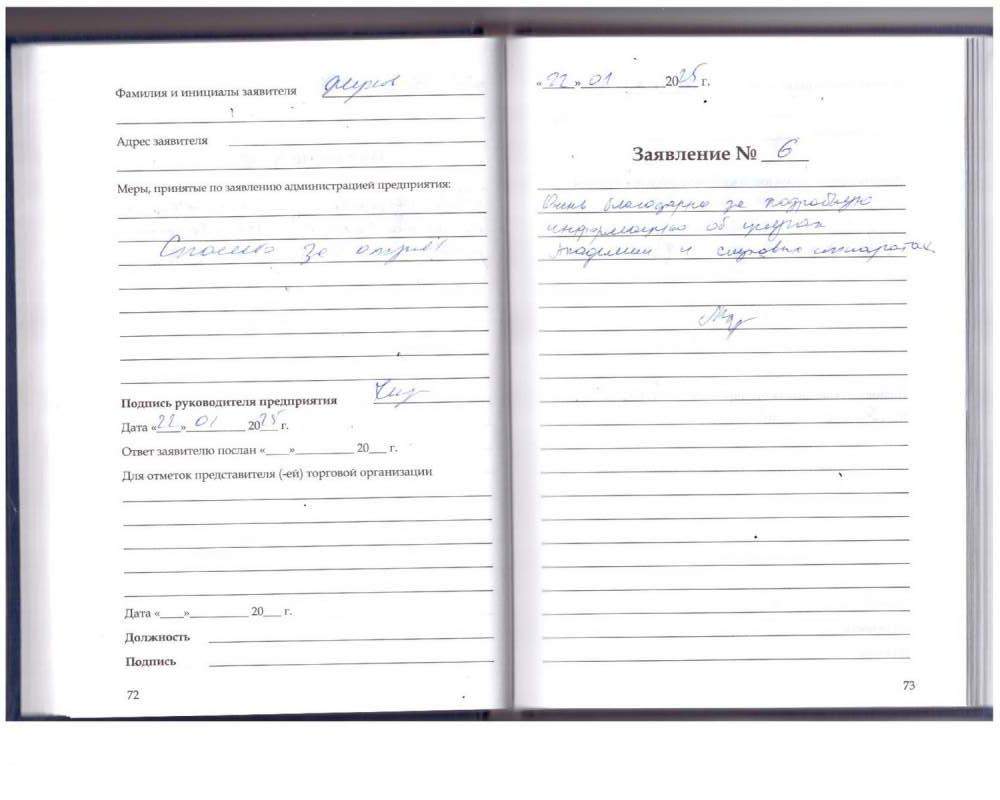 Фамилия и инициалы заявителя
Адрес заявителя
Меры, принятые по заявлению администрацией предприятия:
Спасибо за отзыв!
Подпись руководителя предприятия
Дата «22» 01 2025 г.
Ответ заявителю послан «____»__________ 20___ г.
Для отметок представителя (-ей) торговой организации
Дата «____»__________ 20___ г.
Должность
Подпись
72
«22» 01 2025 г.
Заявление № 6
Очень благодарна за подробную
информацию об услугах
Академии и слуховых аппаратах
73